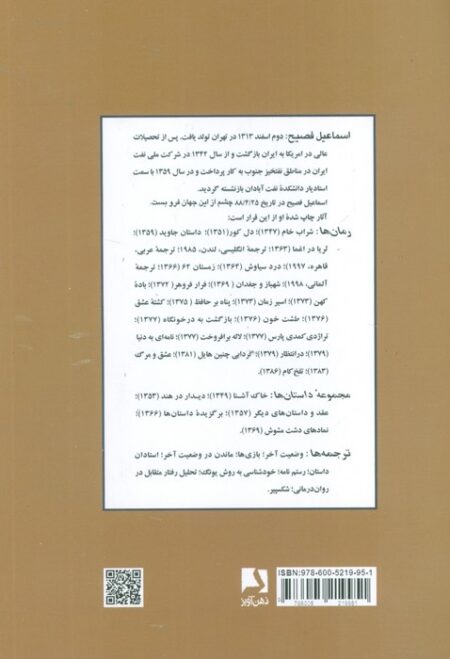 اسماعیل فصیح: دوم اسفند ۱۳۱۳ در تهران تولد یافت. پس از تحصیلات
عالی در امریکا به ایران بازگشت و از سال ۱۳۴۲ در شرکت ملی نفت
ایران در مناطق نفتخیز جنوب به کار پرداخت و در سال ۱۳۵۹ با سمت
استادیار دانشکدهٔ نفت آبادان بازنشسته گردید.
اسماعیل فصیح در تاریخ ۸۸/۴/۲۵ چشم از این جهان فرو بست.
آثار چاپ شدهٔ او از این قرار است:
رمان‌ها: شراب خام (۱۳۴۷)؛ دل کور(۱۳۵۱)؛ داستان جاوید (۱۳۵۹)؛
ثریا در اغما (۱۳۶۳؛ ترجمهٔ انگلیسی، لندن، ۱۹۸۵؛ ترجمهٔ عربی،
قاهره، ۱۹۹۷)؛ درد سیاوش (۱۳۶۴)؛ زمستان ۶۲ (۱۳۶۶؛ ترجمهٔ
آلمانی، ۱۹۹۸)؛ شهباز و جغدان ( ۱۳۶۹)؛ فرار فروهر( ۱۳۷۲)؛ بادهٔ
کهن (۱۳۷۳)؛ اسیر زمان (۱۳۷۳)؛ پناه بر حافظ ( ۱۳۷۵)؛ کشتهٔ عشق
(۱۳۷۶)؛ طشت خون (۱۳۷۶)؛ بازگشت به درخونگاه (۱۳۷۷)؛
تراژدی کمدی پارس (۱۳۷۷)؛ لاله برافروخت (۱۳۷۷)؛ نامه‌ای به دنیا
(۱۳۷۹)؛ درانتظار (۱۳۷۹)؛ گردابی چنین هایل (۱۳۸۱)؛ عشق و مرگ
(۱۳۸۳)؛ تلخ‌کام (۱۳۸۶).
مجموعهٔ داستان‌ها: خاک آشنا (۱۳۴۹)؛ دیدار در هند (۱۳۵۳)؛
عقد و داستان‌های دیگر (۱۳۵۷)؛ برگزیدهٔ داستان‌ها (۱۳۶۶)؛
نمادهای دشت مشوش (۱۳۶۹).
ترجمه‌ها : وضعیت آخر؛ بازی‌ها؛ ماندن در وضعیت آخر؛ استادان
داستان؛ رستم نامه؛ خودشناسی به روش یونگ؛ تحلیل رفتار متقابل در
روان‌درمانی؛ شکسپیر.
ISBN: 978-600-5219-95-1
ذهن‌آویز